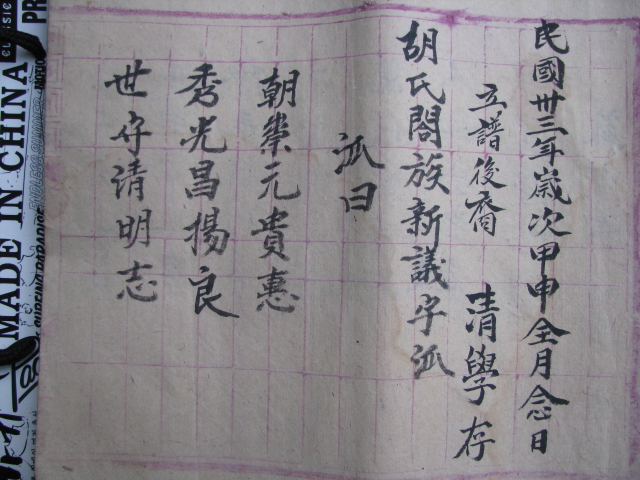 民國卅三年歲次甲申全月念日
立譜後裔 清學存
胡氏閤族新議字派
派曰
朝崇元貴惠
秀光昌揚良
世守清明志
MADE IN CHINA
CLASSIC